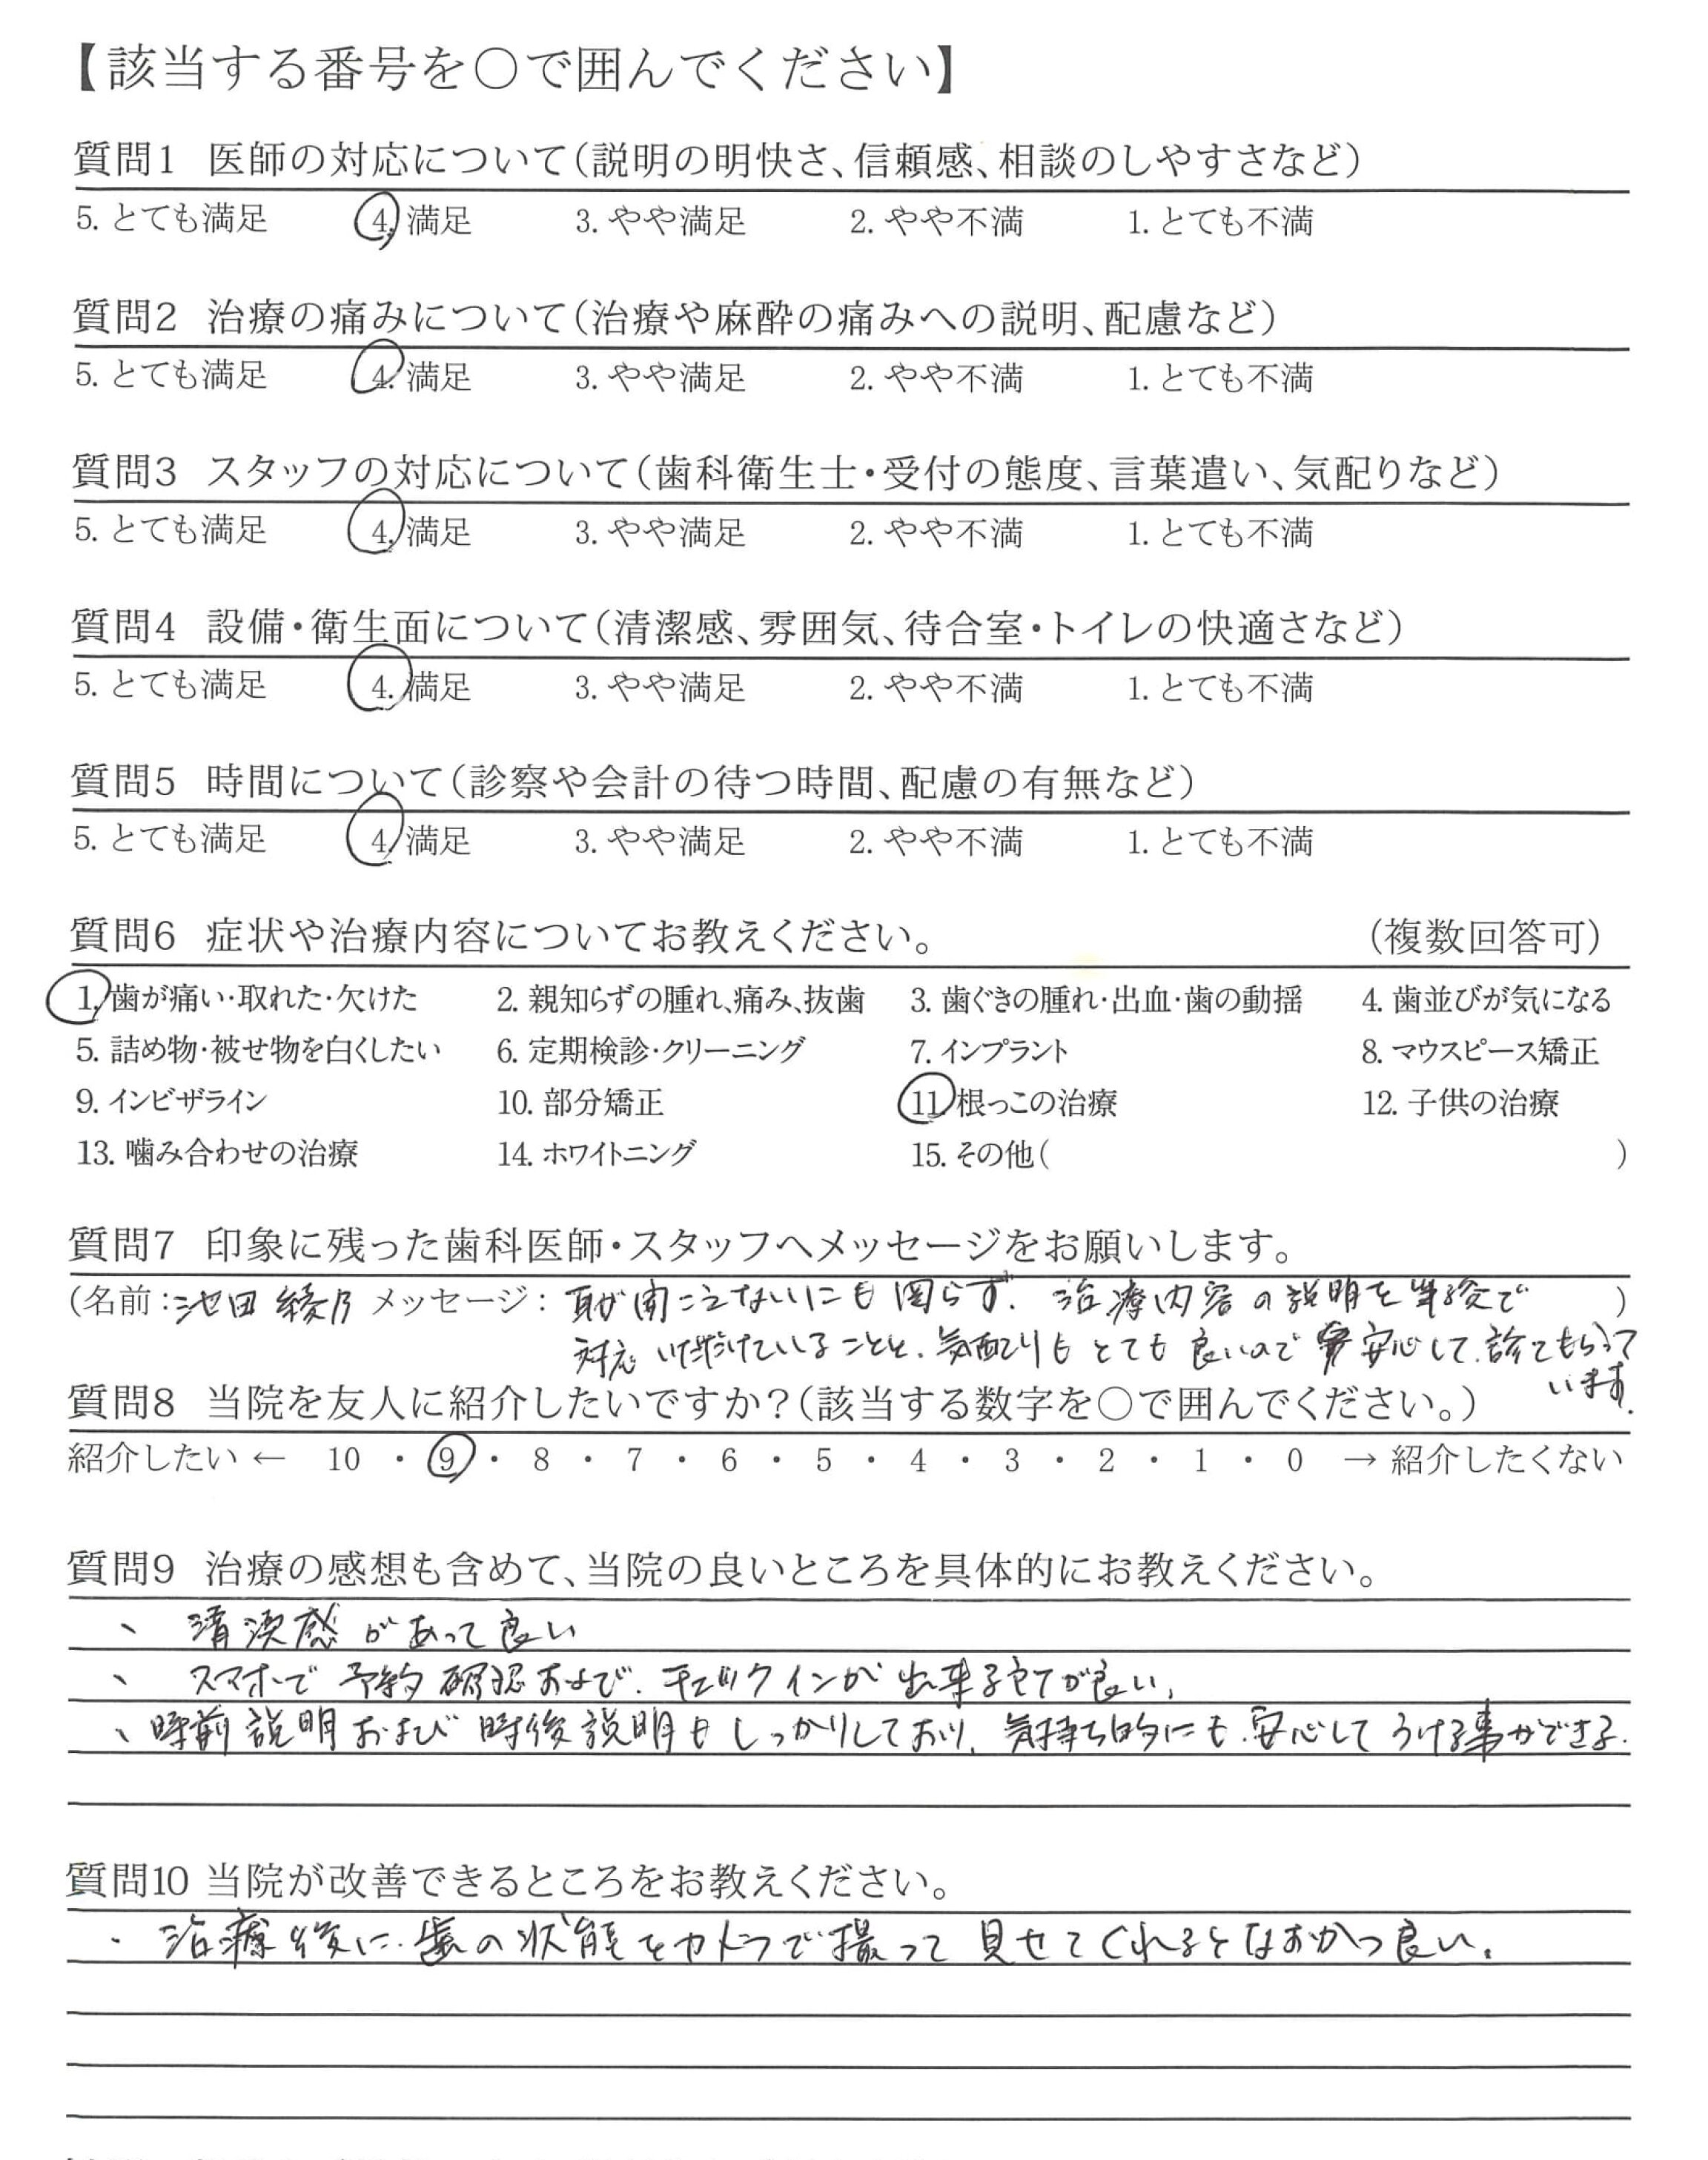 【該当する番号を○で囲んでください】
質問1 医師の対応について(説明の明快さ、信頼感、相談のしやすさなど)
5. とても満足 4. 満足 3. やや満足 2. やや不満 1. とても不満
質問2 治療の痛みについて(治療や麻酔の痛みへの説明、配慮など)
5. とても満足 4. 満足 3. やや満足 2. やや不満 1. とても不満
質問3 スタッフの対応について(歯科衛生士・受付の態度、言葉遣い、気配りなど)
5. とても満足 4. 満足 3. やや満足 2. やや不満 1. とても不満
質問4 設備・衛生面について(清潔感、雰囲気、待合室・トイレの快適さなど)
5. とても満足 4. 満足 3. やや満足 2. やや不満 1. とても不満
質問5 時間について(診察や会計の待つ時間、配慮の有無など)
5. とても満足 4. 満足 3. やや満足 2. やや不満 1. とても不満
質問6 症状や治療内容についてお教えください。 (複数回答可)
1. 歯が痛い・取れた・欠けた 2. 親知らずの腫れ、痛み、抜歯 3. 歯ぐきの腫れ・出血・歯の動揺 4. 歯並びが気になる
5. 詰め物・被せ物を白くしたい 6. 定期検診・クリーニング 7. インプラント 8. マウスピース矯正
9. インビザライン 10. 部分矯正 11. 根っこの治療 12. 子供の治療
13. 噛み合わせの治療 14. ホワイトニング 15. その他( )
質問7 印象に残った歯科医師・スタッフへメッセージをお願いします。
(名前:池田 綾乃 メッセージ: 耳が聞こえないにも関らず、治療内容の説明を筆談で )
対応 いること、気配りも とても 良いので 安心して、診てもらって
います.
質問8 当院を友人に紹介したいですか?(該当する数字を○で囲んでください。)
紹介したい ← 10 ・ 9 ・ 8 ・ 7 ・ 6 ・ 5 ・ 4 ・ 3 ・ 2 ・ 1 ・ 0 → 紹介したくない
質問9 治療の感想も含めて、当院の良いところを具体的にお教えください。
、 清潔感があって良い
、 スマホで 予約 確認および、チェックインが 出来る が良い、
、時前説明および 時後説明も しっかりしており、気持ち的にも、安心して うける事ができる.
質問10 当院が改善できるところをお教えください。
・ 治療後に、歯の状態をカメラで撮って 見せてくれるとなおかつ良い。